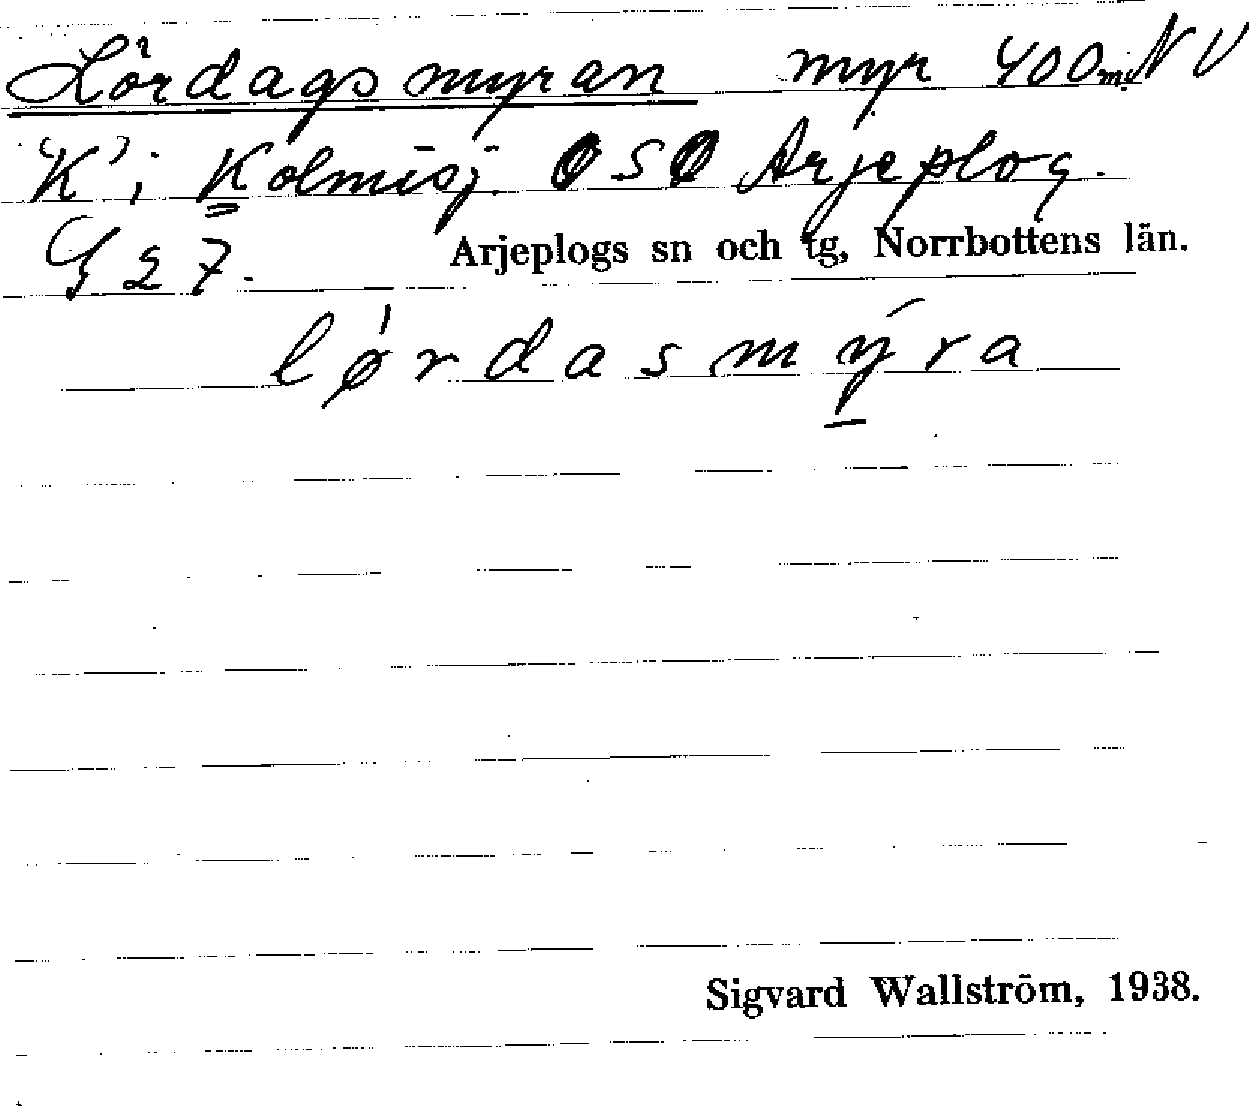 Lördagsmyran myr 400 m. NV
"K" i Kolmisj. OSO Arjeplog.
G 27.
Arjeplogs sn och tg, Norrbottens län.
lø'rdasmȳra
Sigvard Wallström, 1938.